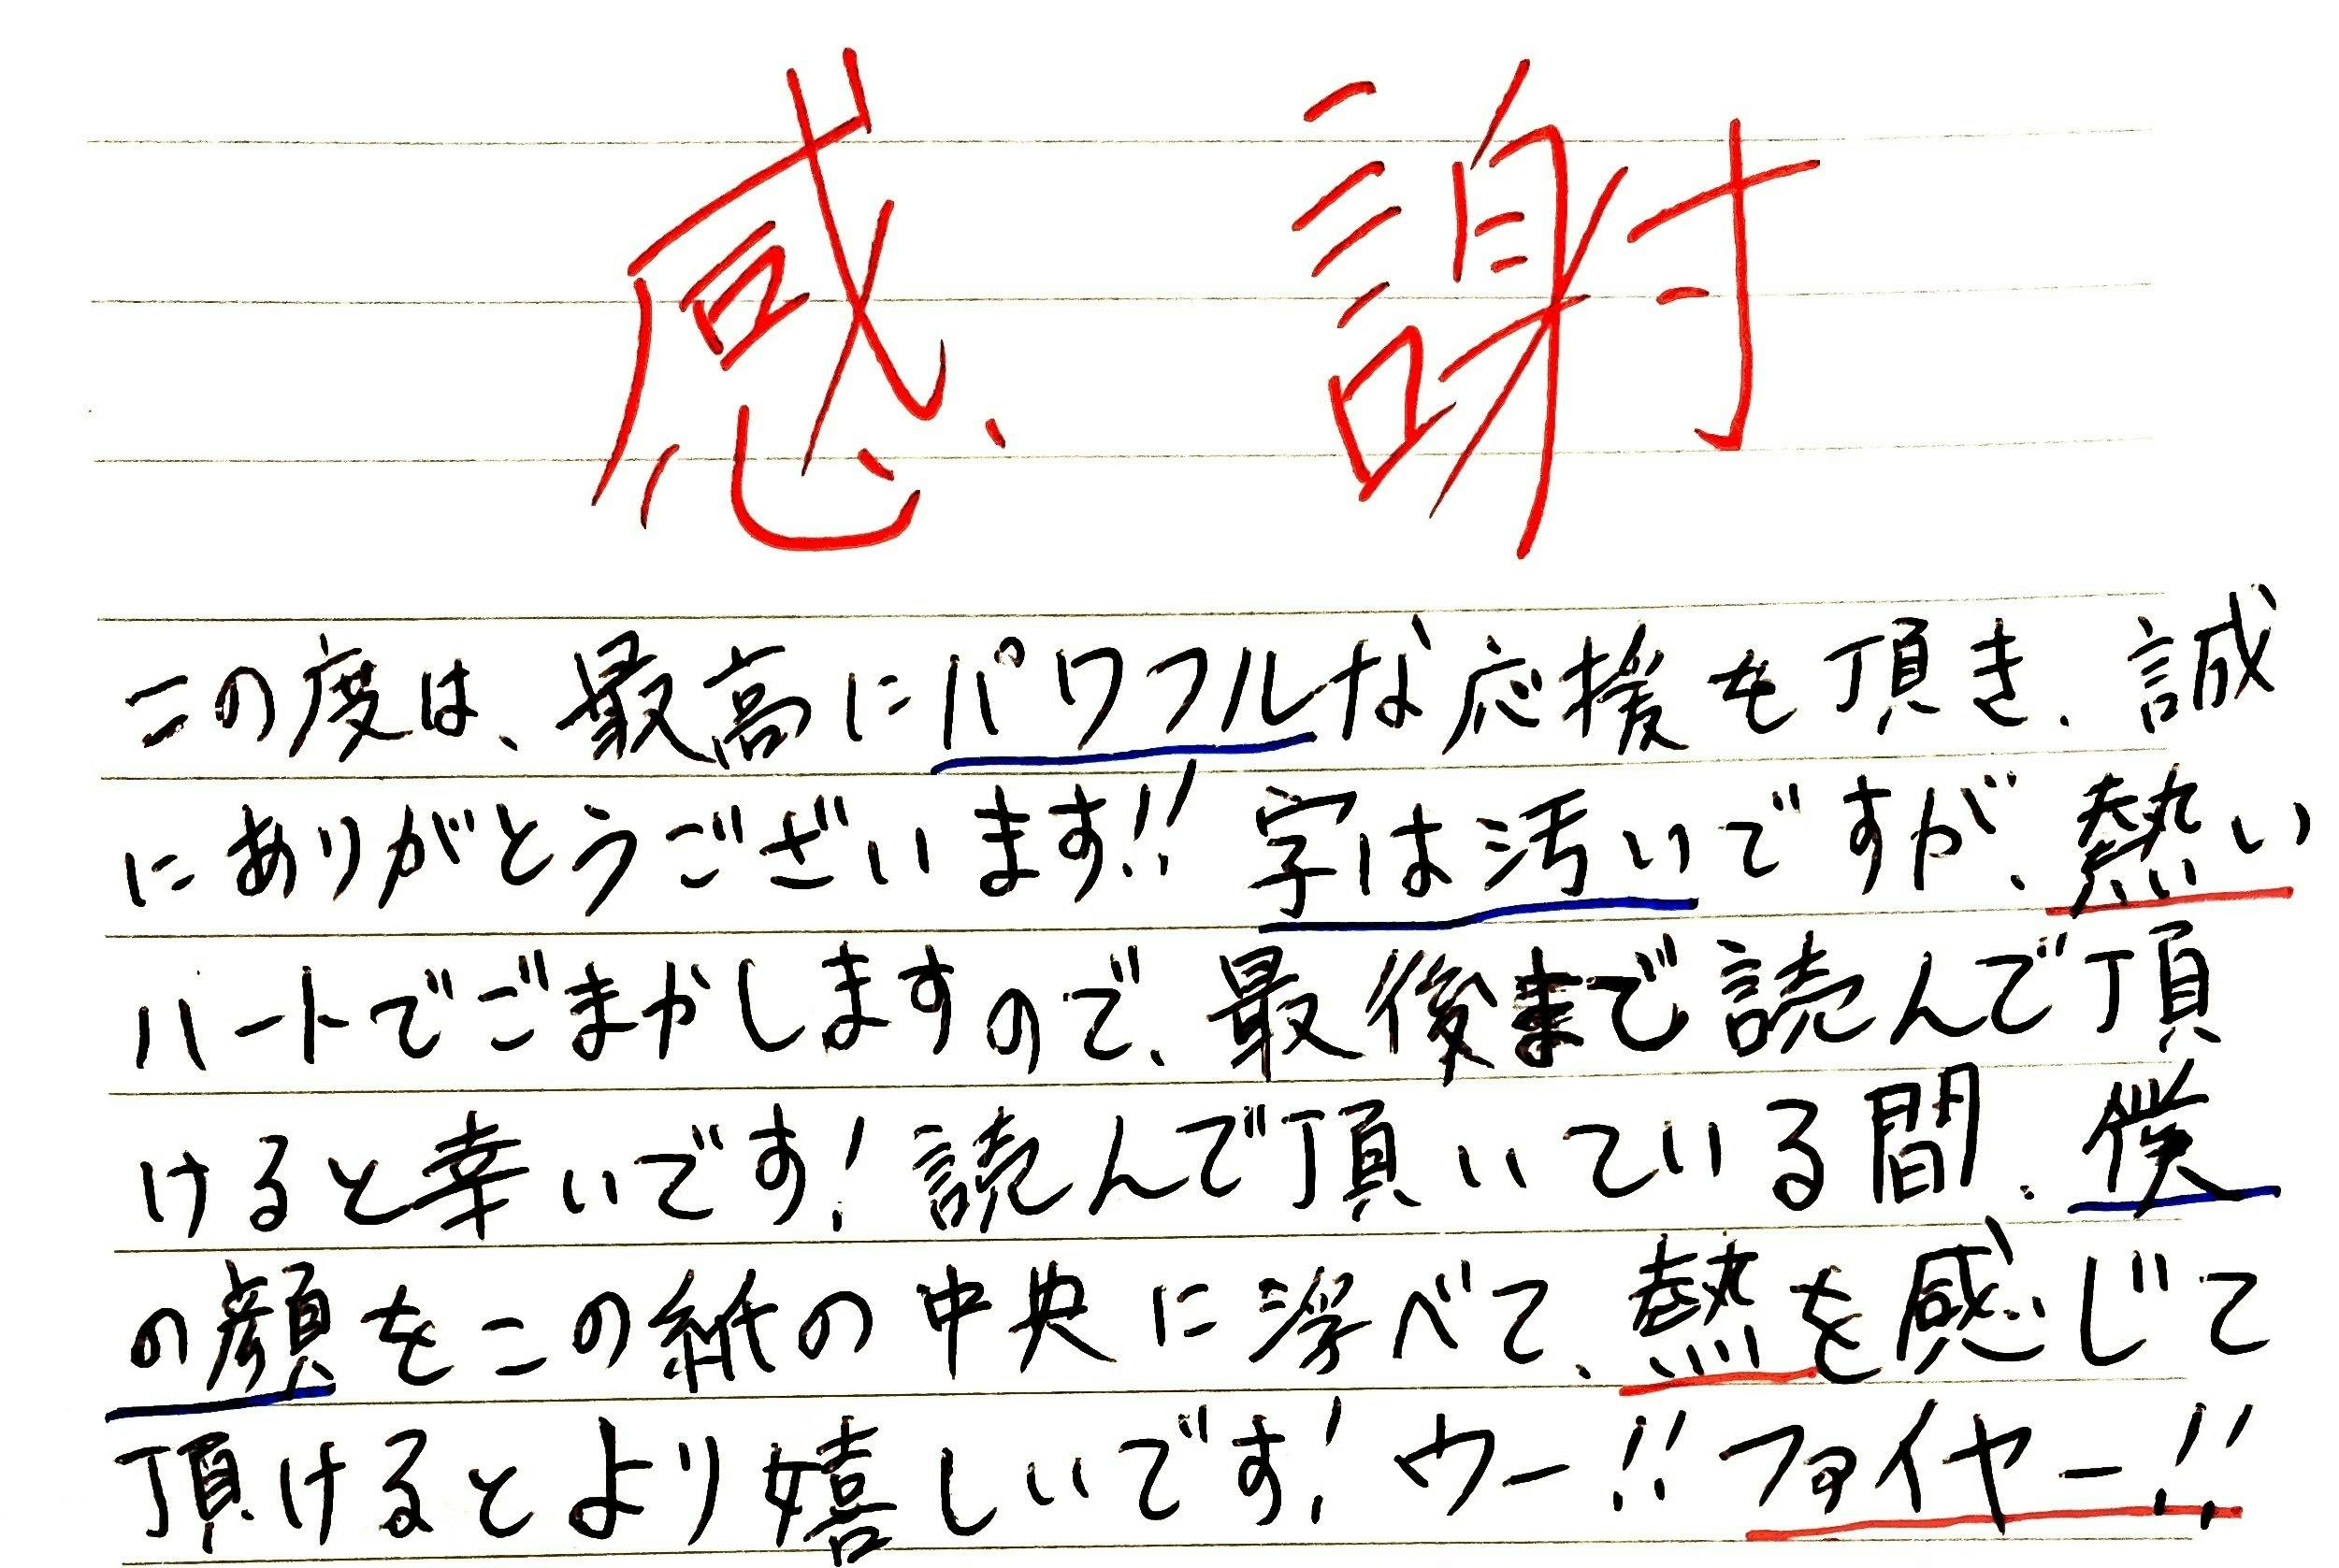 感謝
この度は、最高にパワフルな応援を頂き、誠
にありがとうございます!! 字は汚いですが、熱い
ハートでごまかしますので、最後まで読んで頂
けると幸いです! 読んで頂いている間、僕
の顔をこの紙の中央に浮べて、熱を感じて
頂けるとより嬉しいです! ウー!! ファイヤー!!